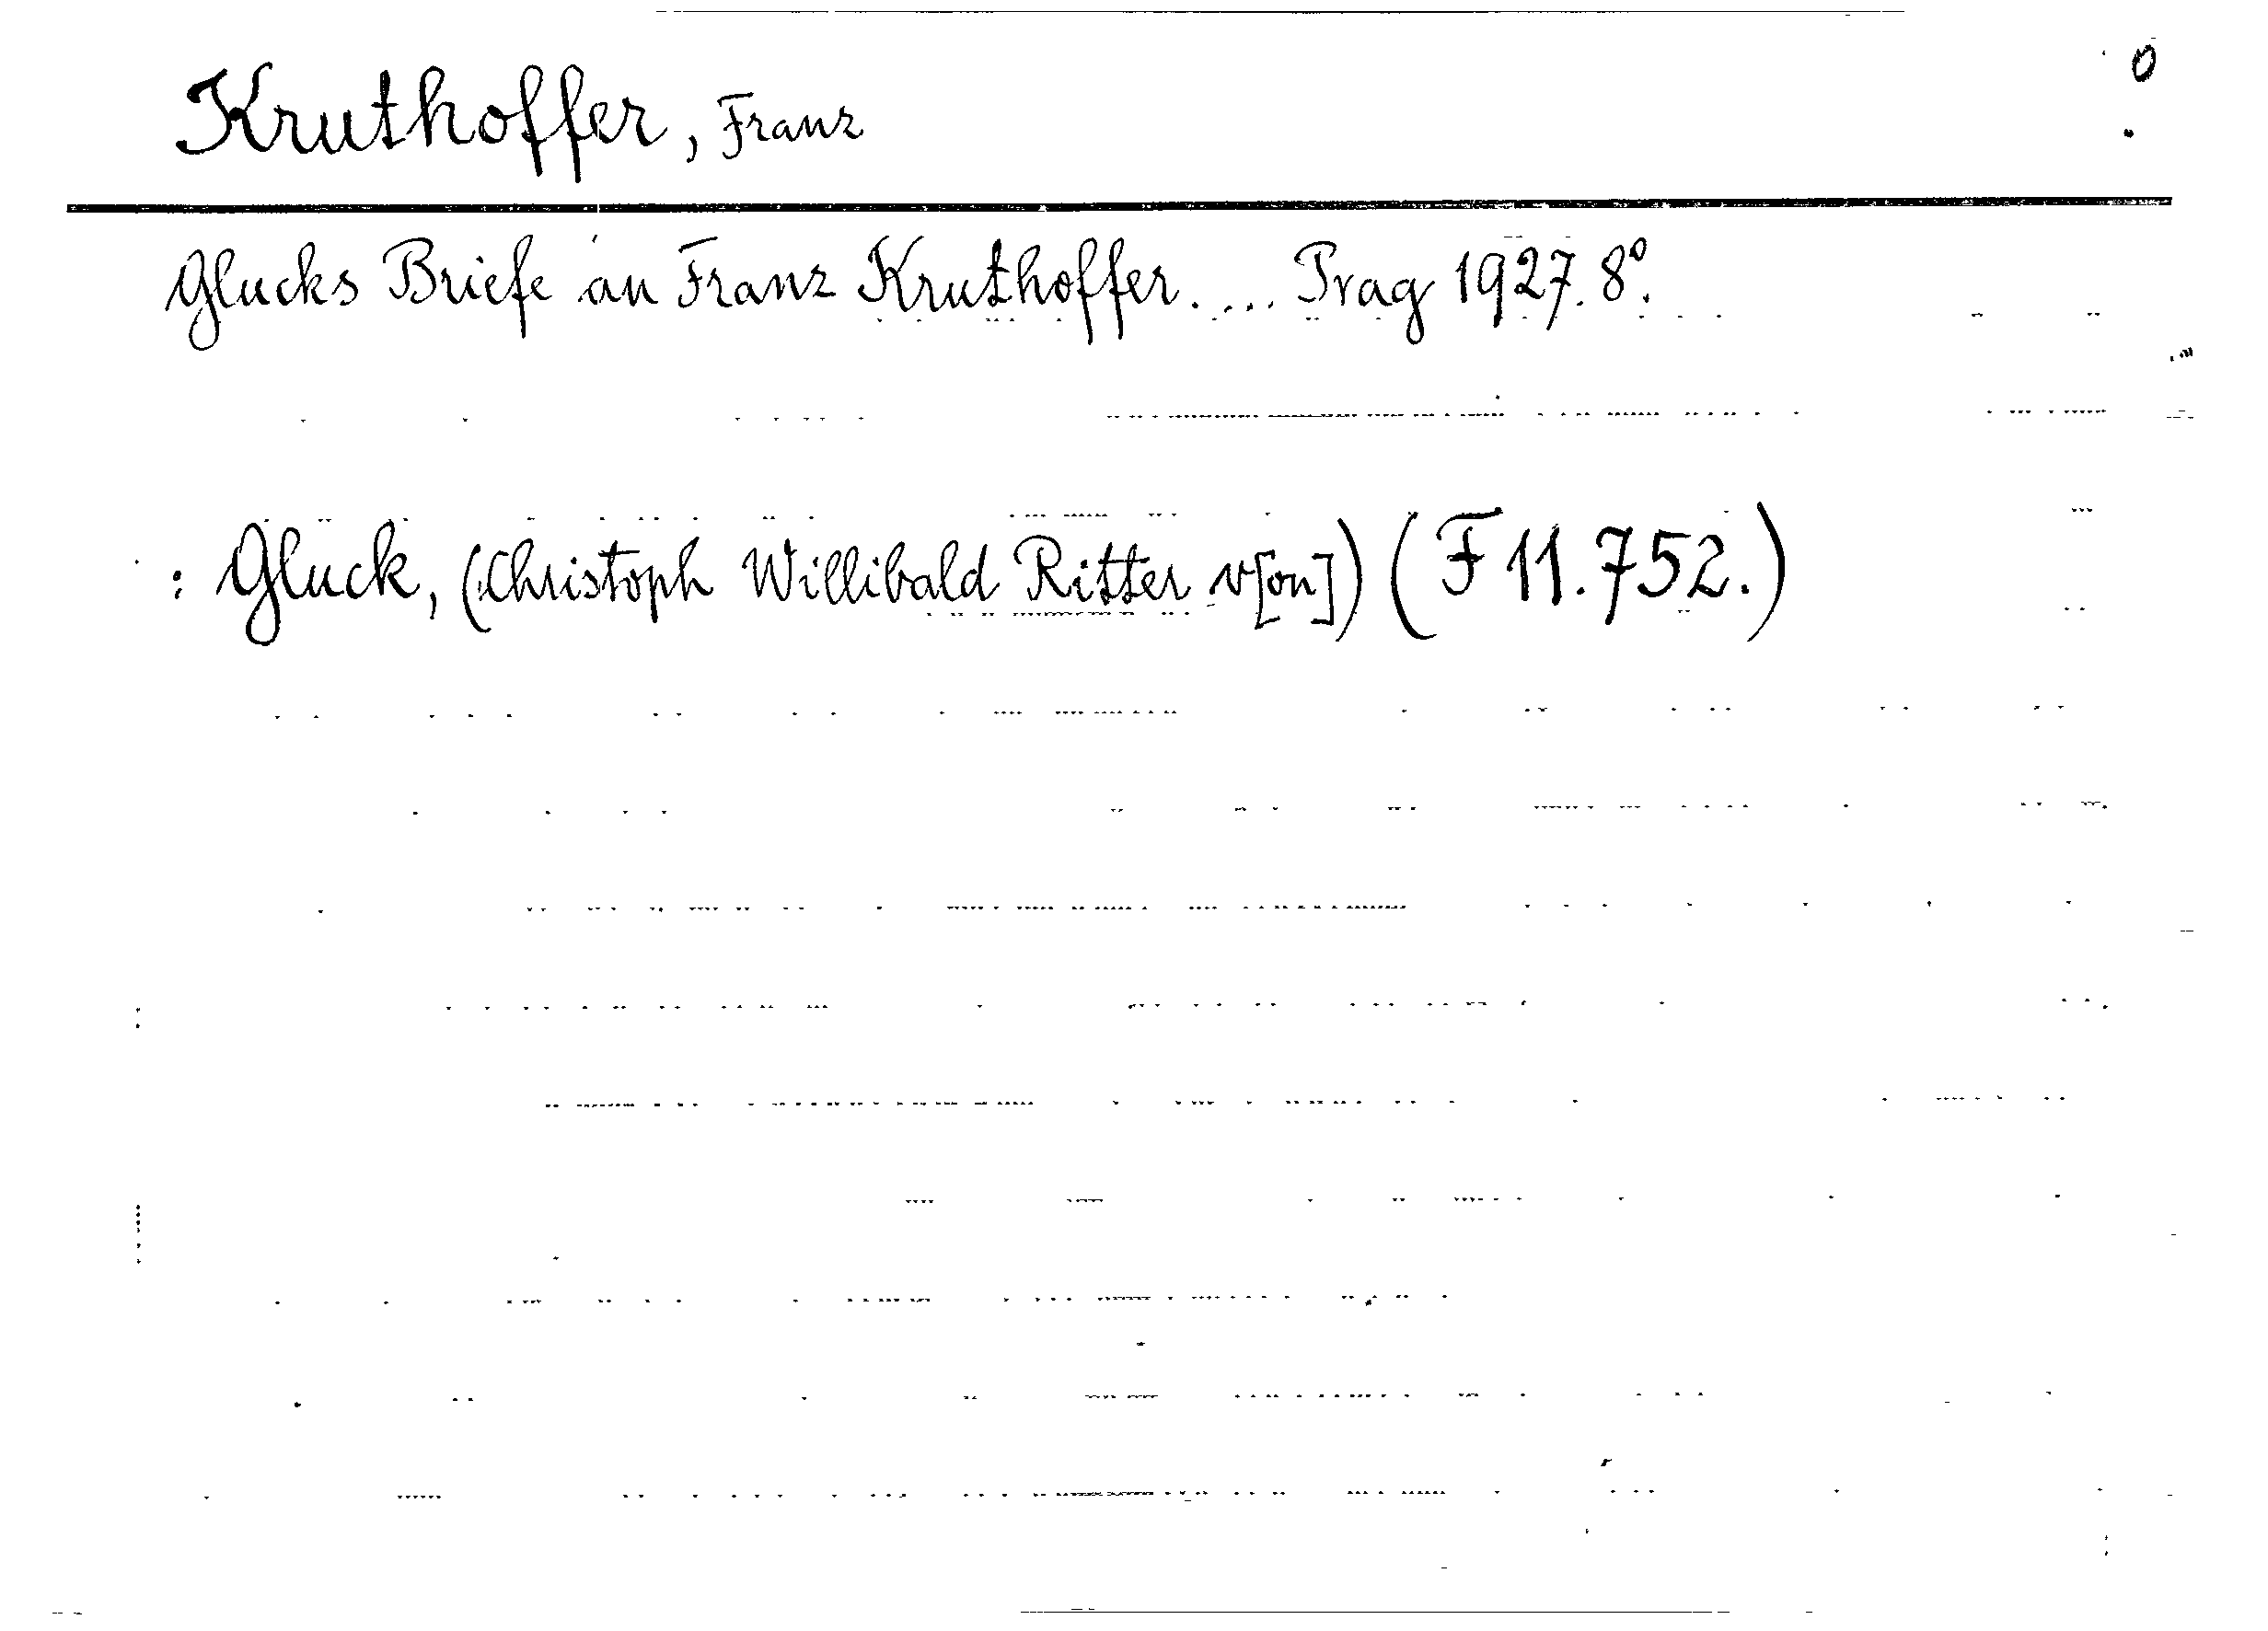 0
Kruthoffer, Franz
Glucks Briefe an Franz Kruthoffer.... Prag 1927. 8°.
: Gluck, (Christoph Willibald Ritter v[on]) (F 11.752.)